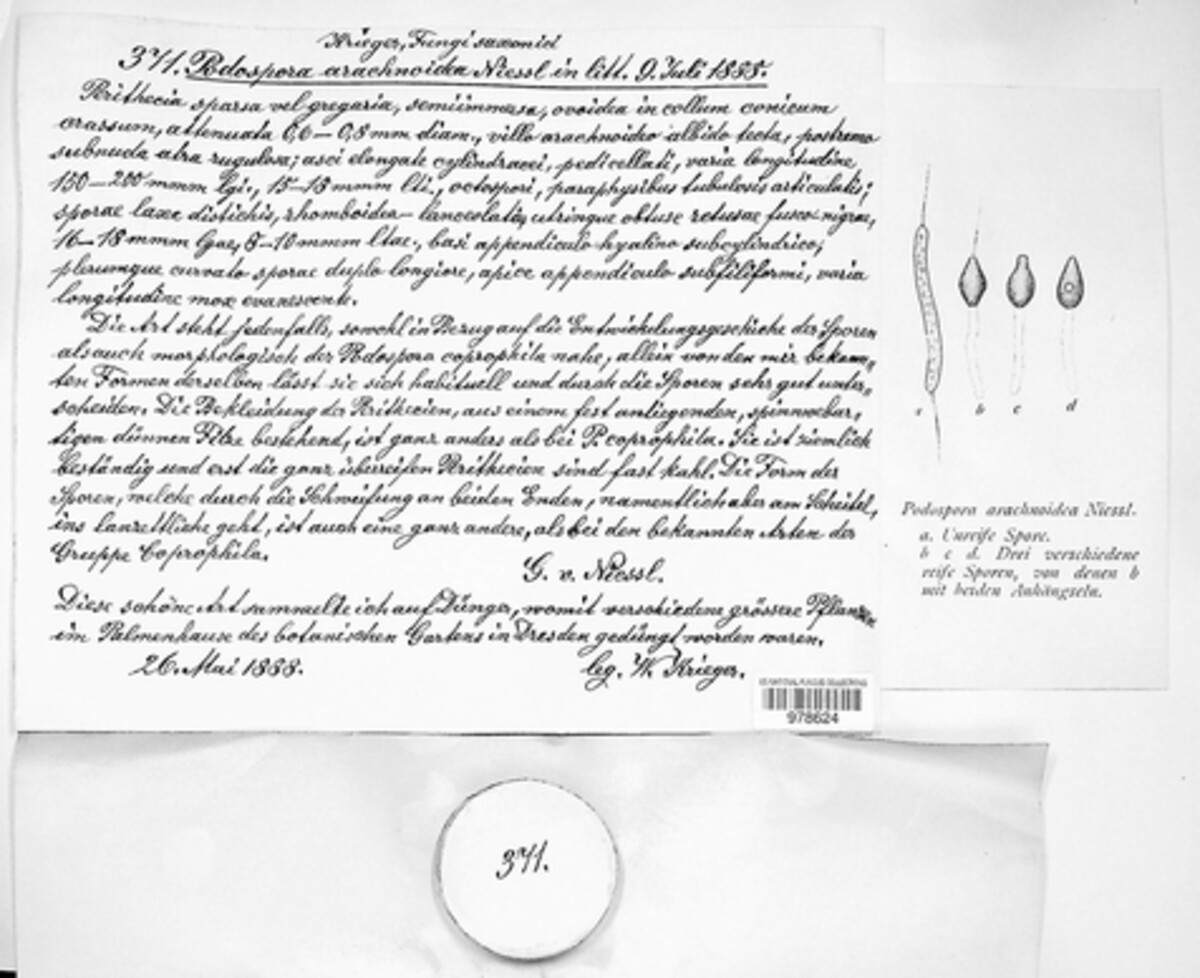 Krieger, Fungi saxonici
371. Podospora arachnoidea Niessl in litt. 9. Juli 1885.
Perithecia sparsa vel gregaria, semiimmersa, ovoidea in collum conicum
crassum, attenuata 0,6—0,8 mm diam., villo arachnoideo albido tecta, postremo
subnuda atra rugulosa; asci elongate cylindracei, pedicellati, varia longitudine
150—200 mmm lgi., 15—18 mmm lti., octospori, paraphysibus tubulosis articulatis;
sporae laxe distichis, rhomboidea—lanceolatis, utringue obtuse retusae fusco nigrae,
16—18 mmm lgae, 8—10 mmm ltae., basi appendiculo hyalino subcylindrico,
plerumque curvato sporae duplo longiore, apice appendiculo subfiliformi, varia
longitudine mox evanescente.
Die Art steht jedenfalls, sowohl in Bezug auf die Entwickelungsgeschichte der Sporen
als auch morphologisch der Podospora coprophila nahe, allein von den mir bekann-
ten Formen derselben lässt sie sich habituell und durch die Sporen sehr gut unter-
scheiden. Die Bekleidung der Perithecien, aus einem fest anliegenden, spinnwebar-
tigen dünnen Filze bestehend, ist ganz anders als bei P. coprophila. Sie ist ziemlich
beständig und erst die ganz überreifen Perithecien sind fast kahl. Die Form der
Sporen, welche durch die Schweifung an beiden Enden, namentlich aber am Scheitel,
ins lanzettliche geht, ist auch eine ganz andere, als bei den bekannten Arten der
Gruppe Coprophila.
G. v. Niessl.
Diese schöne Art sammelte ich auf Dünger, womit verschiedene grössere Pflanzen
im Palmenhause des botanischen Gartens in Dresden gedüngt worden waren.
26. Mai 1888. leg. W. Krieger.
US NATIONAL FUNGUS COLLECTIONS
978624
a b c d
Podospora arachnoidea Niessl.
a. Unreife Spore.
b c d. Drei verschiedene
reife Sporen, von denen b
mit beiden Anhängseln.
371.